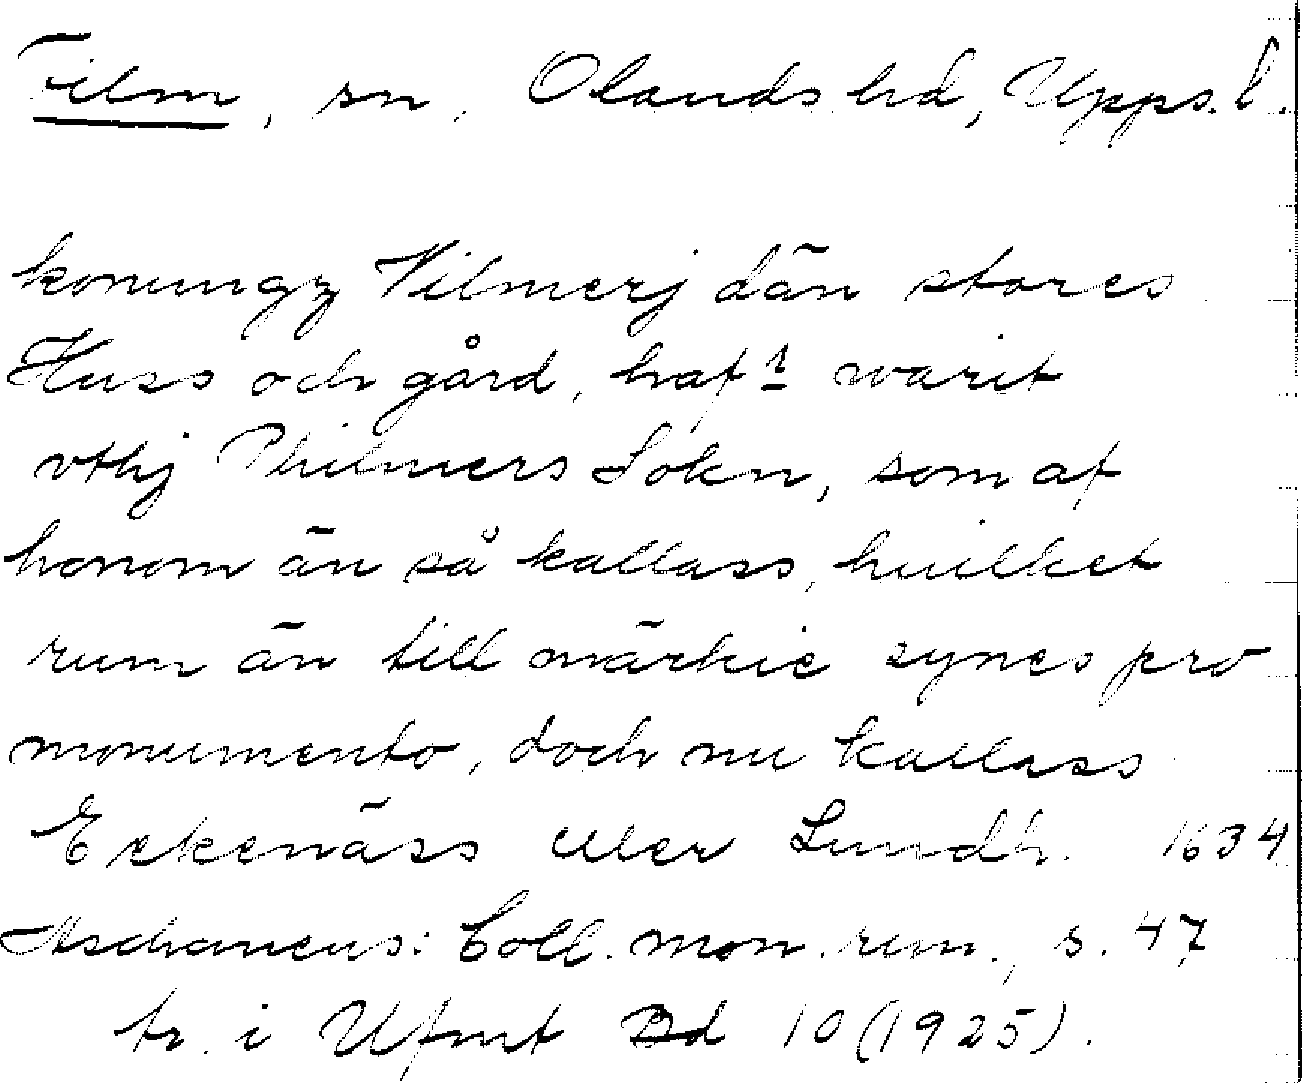 Film, sn, Olands hd, Upps. l.
konungz Vilmerj dän stores
Huss och gård, haf.r warit
vthj Philmers Sokn, som af
honom än så kallass, huilket
rum än till märkie synes pro
monumento, doch nu kallass
Eckenäss eller Lundh. 1634
Aschaneus: Coll. mon. run., s. 47
tr. i Ufmt Bd 10 (1925).